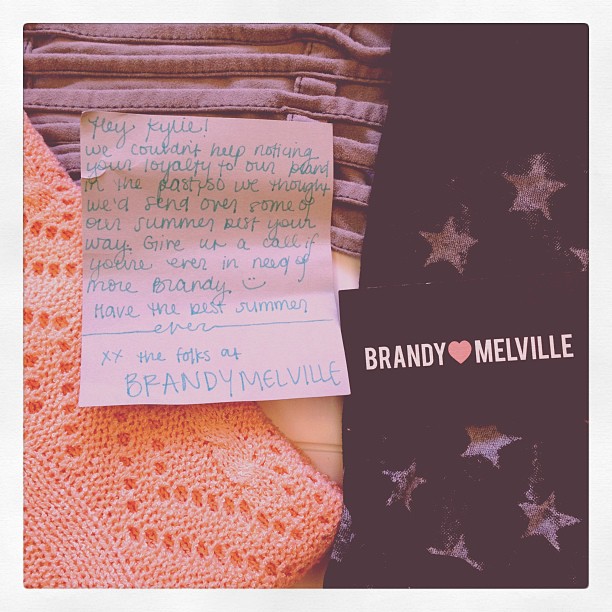 Hey Kylie!
we couldn't help noticing
your loyalty to our brand
in the past, so we thought
we'd send over some of
our summer best your
way. Give us a call if
you're ever in need of
more Brandy. :)
Have the best summer
ever
xx the folks at
BRANDY MELVILLE
BRANDY♥MELVILLE